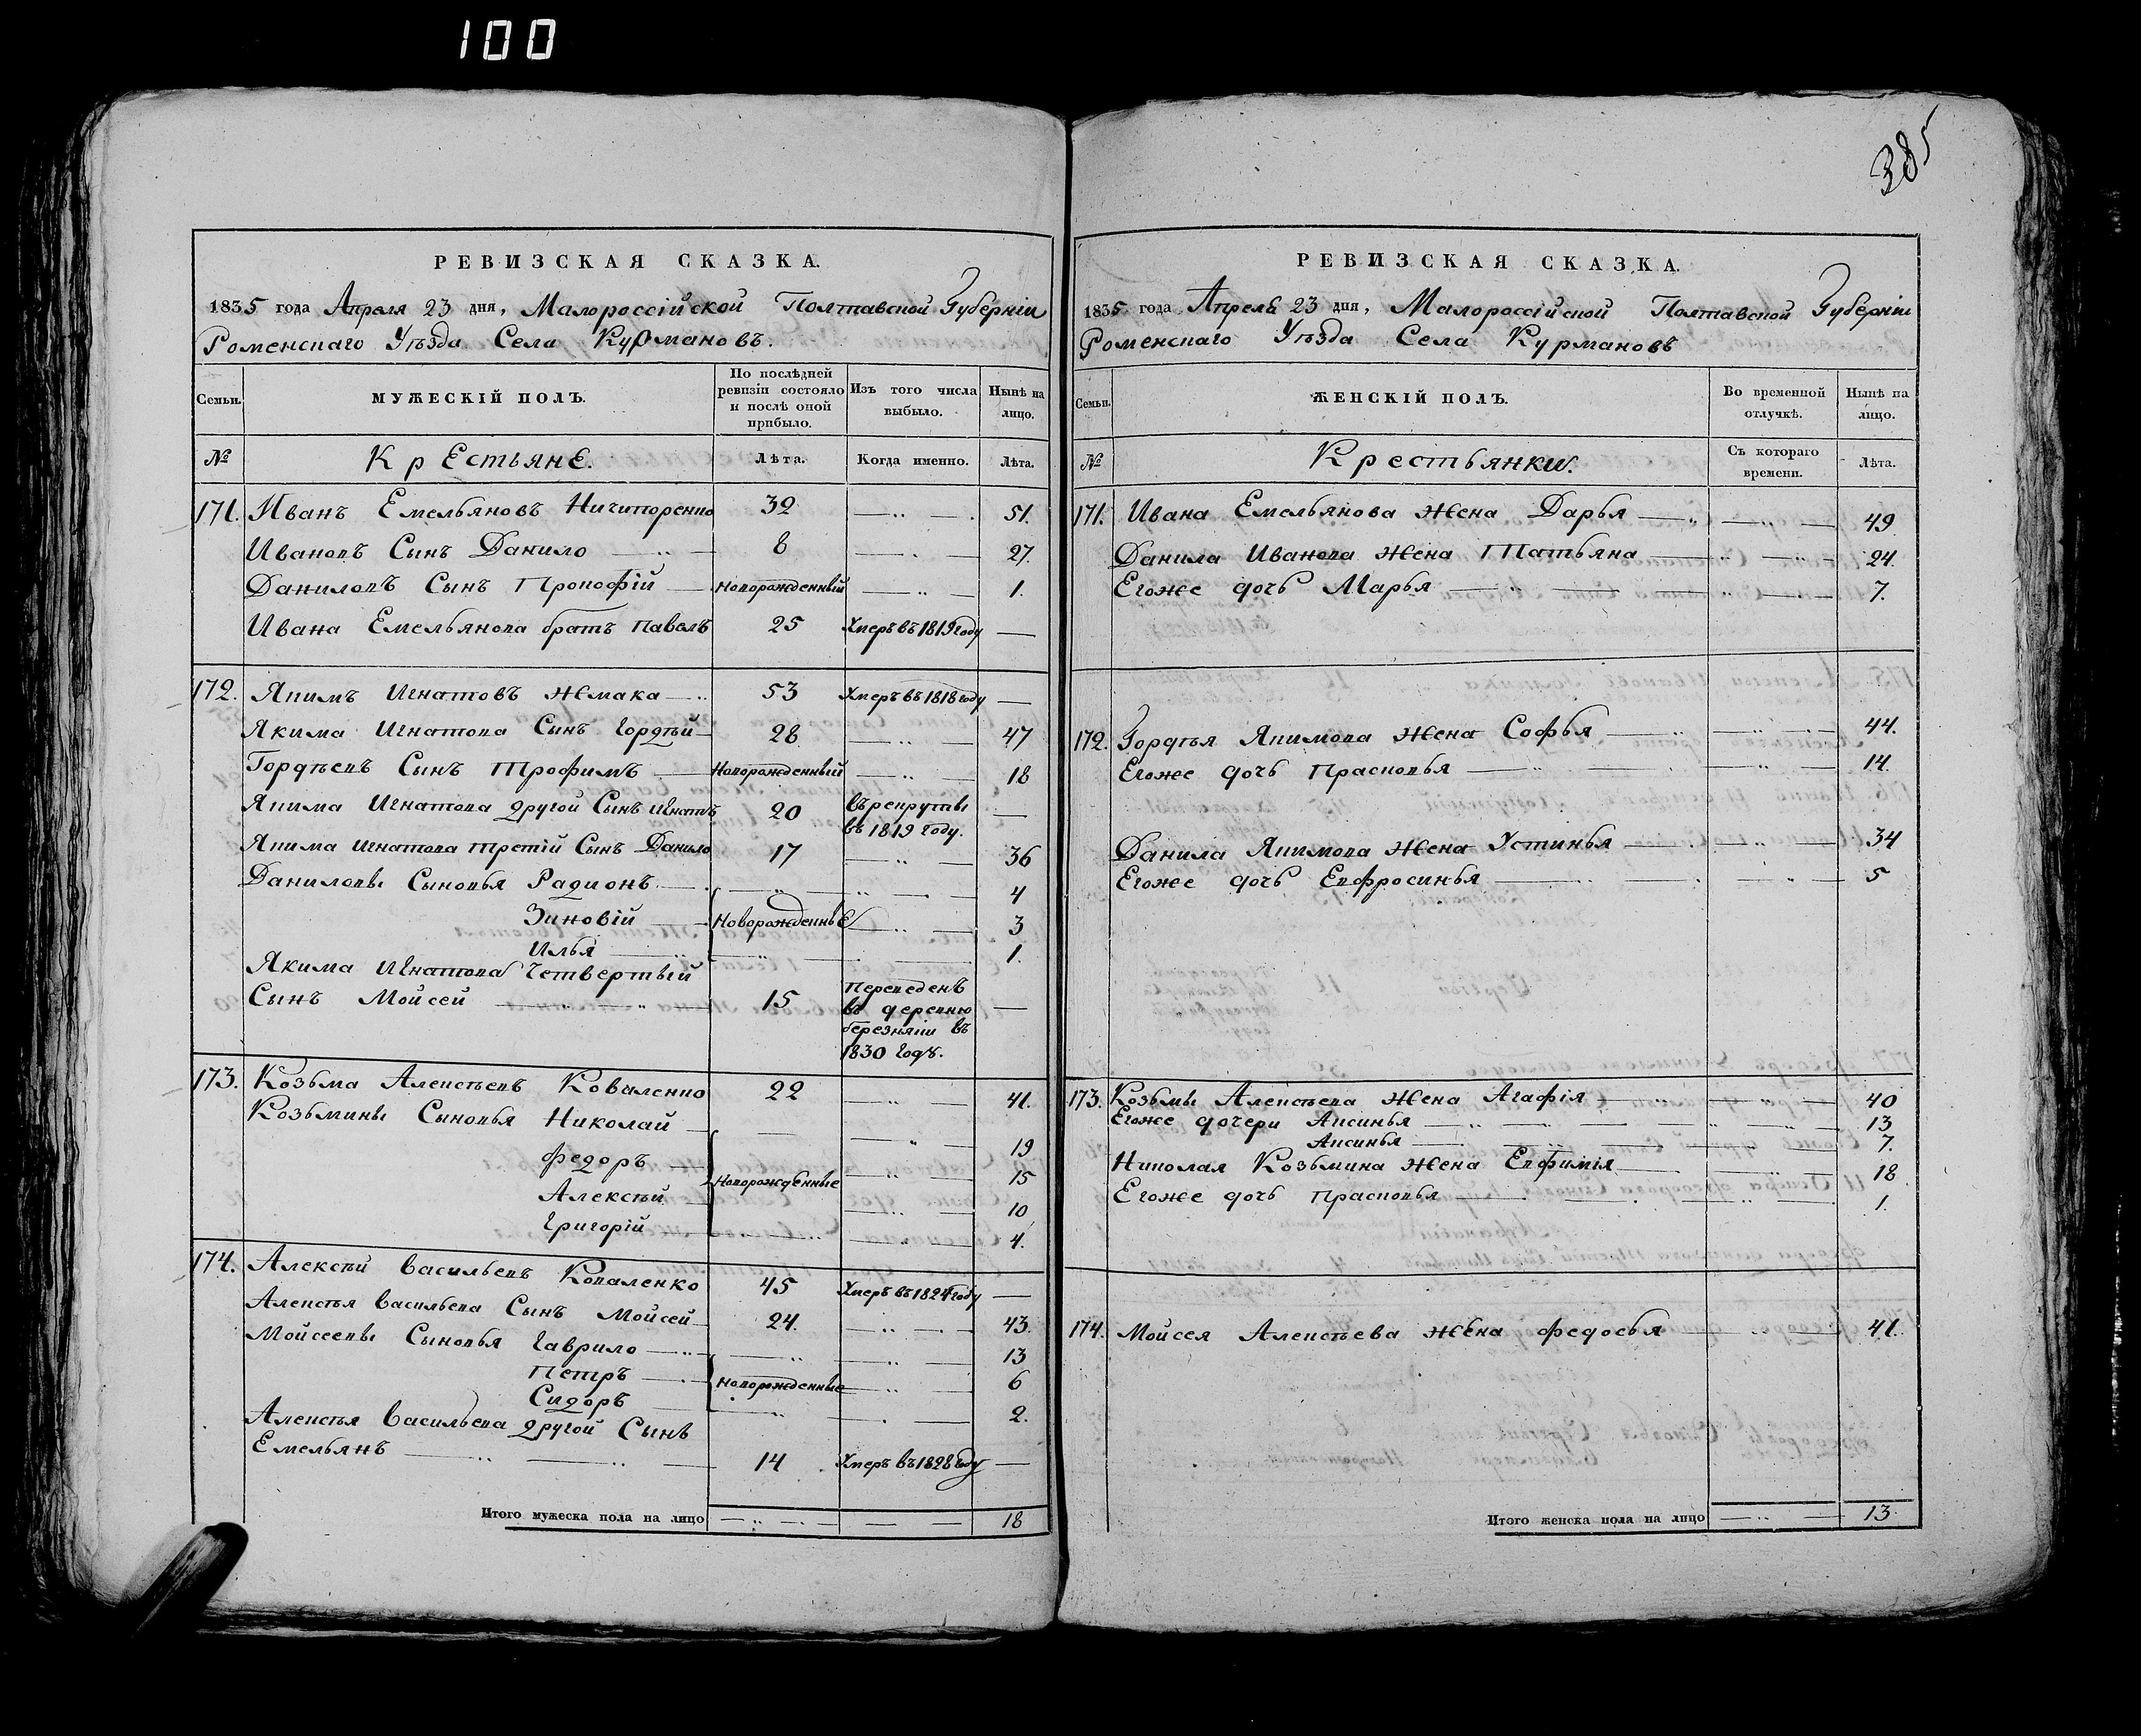 100
385
РЕВИЗСКАЯ СКАЗКА.
1835 года Апреля 23 дня, Малороссійской Полтавской Губерніи
Роменскаго Уѣзда Села Курмановъ.
Семьи.
МУЖЕСКІЙ ПОЛЪ.
По послѣдней ревизіи состояло и послѣ оной прибыло.
Изъ того числа выбыло.
Нынѣ на лицо.
№ Крестьяне. Лѣта. Когда именно. Лѣта.
171. Иванъ Емельяновъ Ничипоренко 32 51.
Ивановъ Сынъ Данило 8 27.
Даниловъ Сынъ Прокофій новорожденный 1.
Ивана Емельянова братъ Павелъ 25 Умеръ въ 1819 году
172. Якимъ Игнатовъ Жмака 53 Умеръ въ 1818 году
Якима Игнатова Сынъ Гордѣй 28 47
Гордѣевъ Сынъ Трофимъ Новорожденный 18
Якима Игнатова другой Сынъ Игнатъ 20 въ рекруты
въ 1819 году.
Якима Игнатова третій Сынъ Данило 17 36
Даниловы Сыновья Радионъ 4
Зиновій Новорожденные 3
Илья 1.
Якима Игнатова четвертый
Сынъ Мойсей 15 переведенъ
въ деревню
березняки въ
1830 годѣ.
173. Козьма Алексѣевъ Коваленко 22 41.
Козьмины Сыновья Николай 19
Федоръ Новорожденные 15
Алексѣй 10
Григорій 4.
174. Алексѣй Васильевъ Коваленко 45 Умеръ въ 1824 году
Алексѣя Васильева Сынъ Мойсей 24. 43.
Мойсеевы Сыновья Гаврило 13
Петръ новорожденные 6
Сидоръ 2.
Алексѣя Васильева другой Сынъ
Емельянъ 14 Умеръ въ 1828 году
Итого мужеска пола на лицо 18
РЕВИЗСКАЯ СКАЗКА.
1835 года Апреля 23 дня, Малороссійской Полтавской Губерніи
Роменскаго Уѣзда Села Курмановъ
Семьи.
ЖЕНСКІЙ ПОЛЪ.
Во временной отлучкѣ.
Нынѣ на лицо.
№ Крестьянки. Съ котораго времени. Лѣта.
171. Ивана Емельянова жена Дарья 49
Данила Иванова жена Татьяна 24.
Егоже дочь Марья 7.
172. Гордѣя Якимова жена Софья 44.
Егоже дочь Прасковья 14.
Данила Якимова жена Устинья 34
Егоже дочь Евфросинья 5
173. Козьмы Алексѣева жена Агафія 40
Егоже дочери Аксинья 13
Аксинья 7.
Николая Козьмина жена Евфимія 18
Егоже дочь Прасковья 1.
174. Мойсея Алексѣева жена Федосья 41.
Итого женска пола на лицо 13